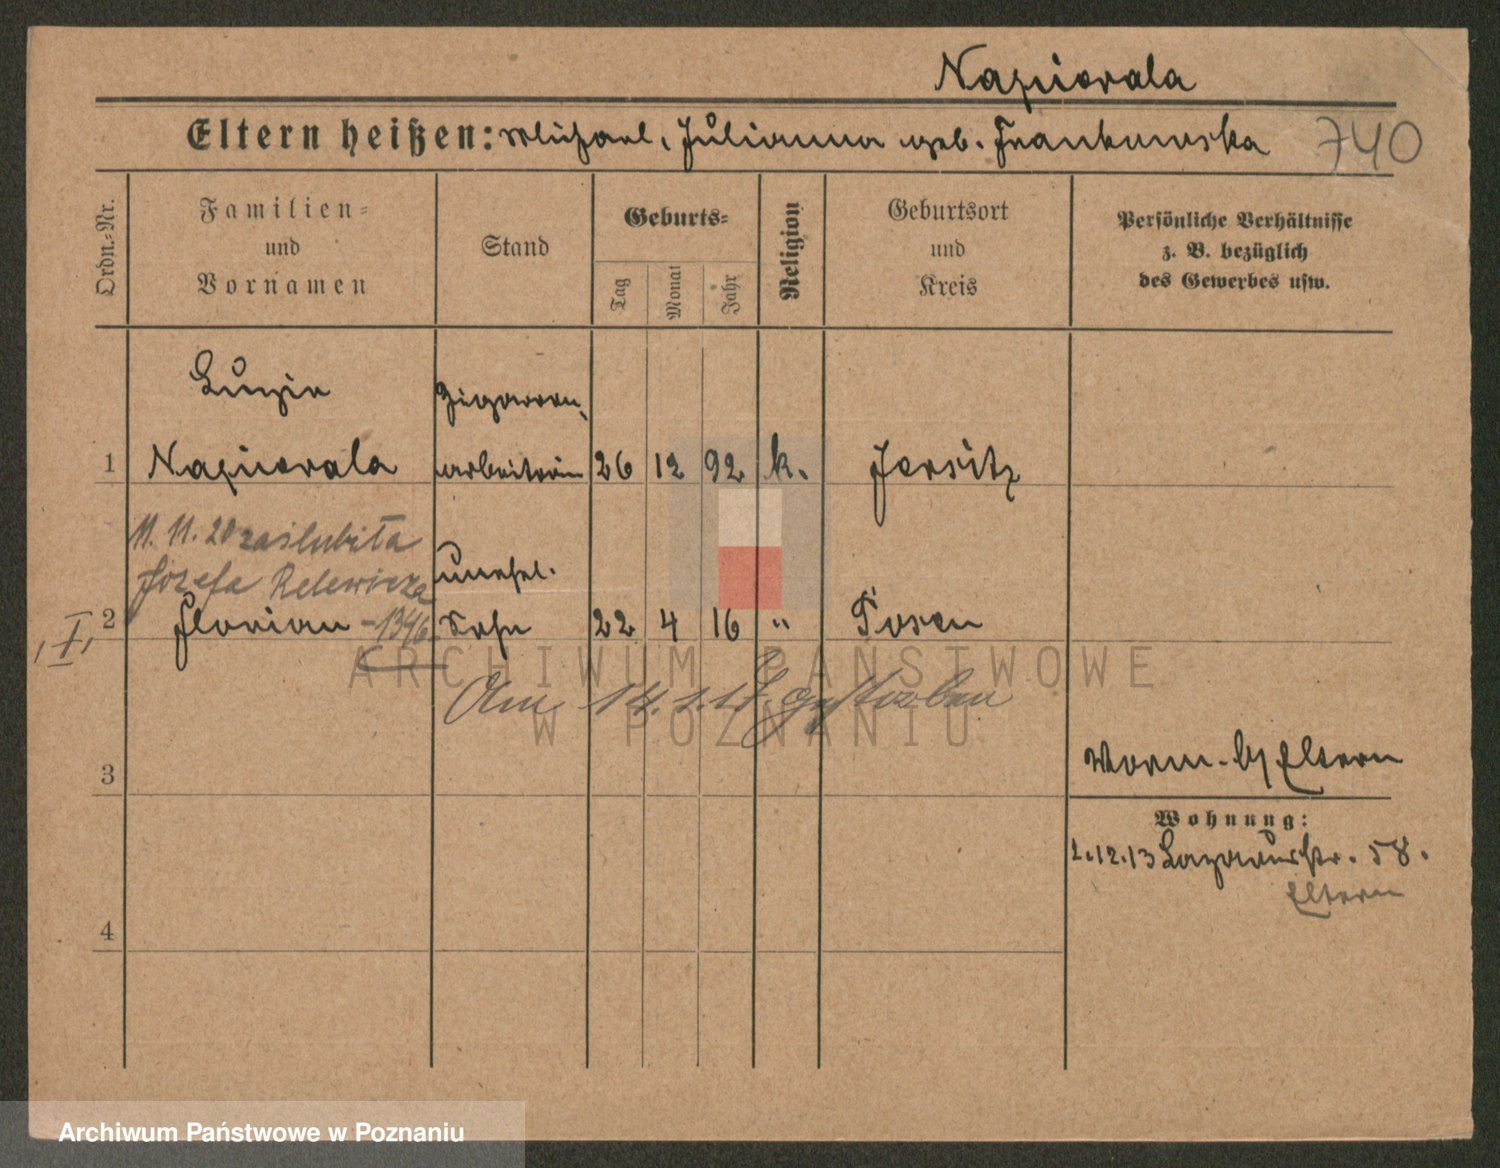 Napierala
Eltern heißen: Michael, Julianna geb. Frankowska 740
Ordn.-Nr.
Familien-
und
Vornamen
Stand
Geburts-
Tag
Monat
Jahr
Religion
Geburtsort
und
Kreis
Persönliche Verhältnisse
z. B. bezüglich
des Gewerbes usw.
Luzie Zigarren
1 Napierala arbeiterin 26 12 92 k. Jersitz
11. 11. 20 zaślubiła
Józefa Relewicza unehel.
I, 2 Florian -1346 Sohn 22 4 16 " Posen
Am 14.1.17. gestorben
3
Worm. b/ Eltern
Wohnung:
2.12.13 Lazarusstr. 58.
Eltern
4
ARCHIWUM PAŃSTWOWE
W POZNANIU
Archiwum Państwowe w Poznaniu